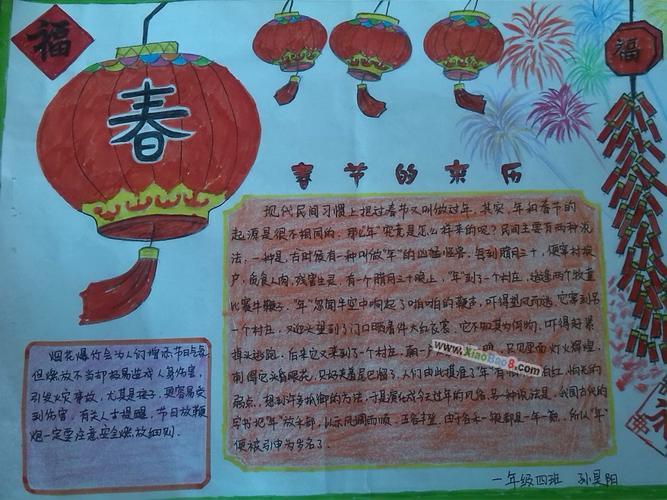 福
春
福
春节的来历
现代民间习惯上把过春节又叫做过年。其实，年和春节的
起源是很不相同的。那么"年"究竟是怎么样来的呢？民间主要有两种说
法：一种是，古时候有一种叫做"年"的凶猛怪兽，每到腊月三十，便窜村挨
户，觅食人肉，残害生灵。有一个腊月三十晚上，"年"到了一个村庄，适逢两个牧童
比赛牛鞭子。"年"忽闻半空中响起了啪啪的鞭声，吓得望风而逃。它窜到另
一个村庄，又迎头望到了门口晒着件大红衣裳，它不知其为何物，吓得赶紧
掉头逃跑。后来它又来到了一个村庄，朝一户
只见里面灯火辉煌，
刺得它头昏眼花，只好夹着尾巴溜了。人们由此摸准了"年"有
怕光的
弱点，想到许多抵御的方法，于是演化成今天过年的风俗。另一种说法是，我国古代的
字书把"年"放禾部，以示风调雨顺，五谷丰登。由于谷禾一般都是一年一熟，所以"年"
便被引申为岁名了。
烟花爆竹会为人们增添节日气氛
但燃放不当却极易造成人身伤害，
引发火灾事故，尤其是孩子，更容易受
到伤害，有关人士提醒，节日放鞭
炮一定要注意安全燃放细则。
www.XiaoBao8.com
一年级四班 孙昊阳